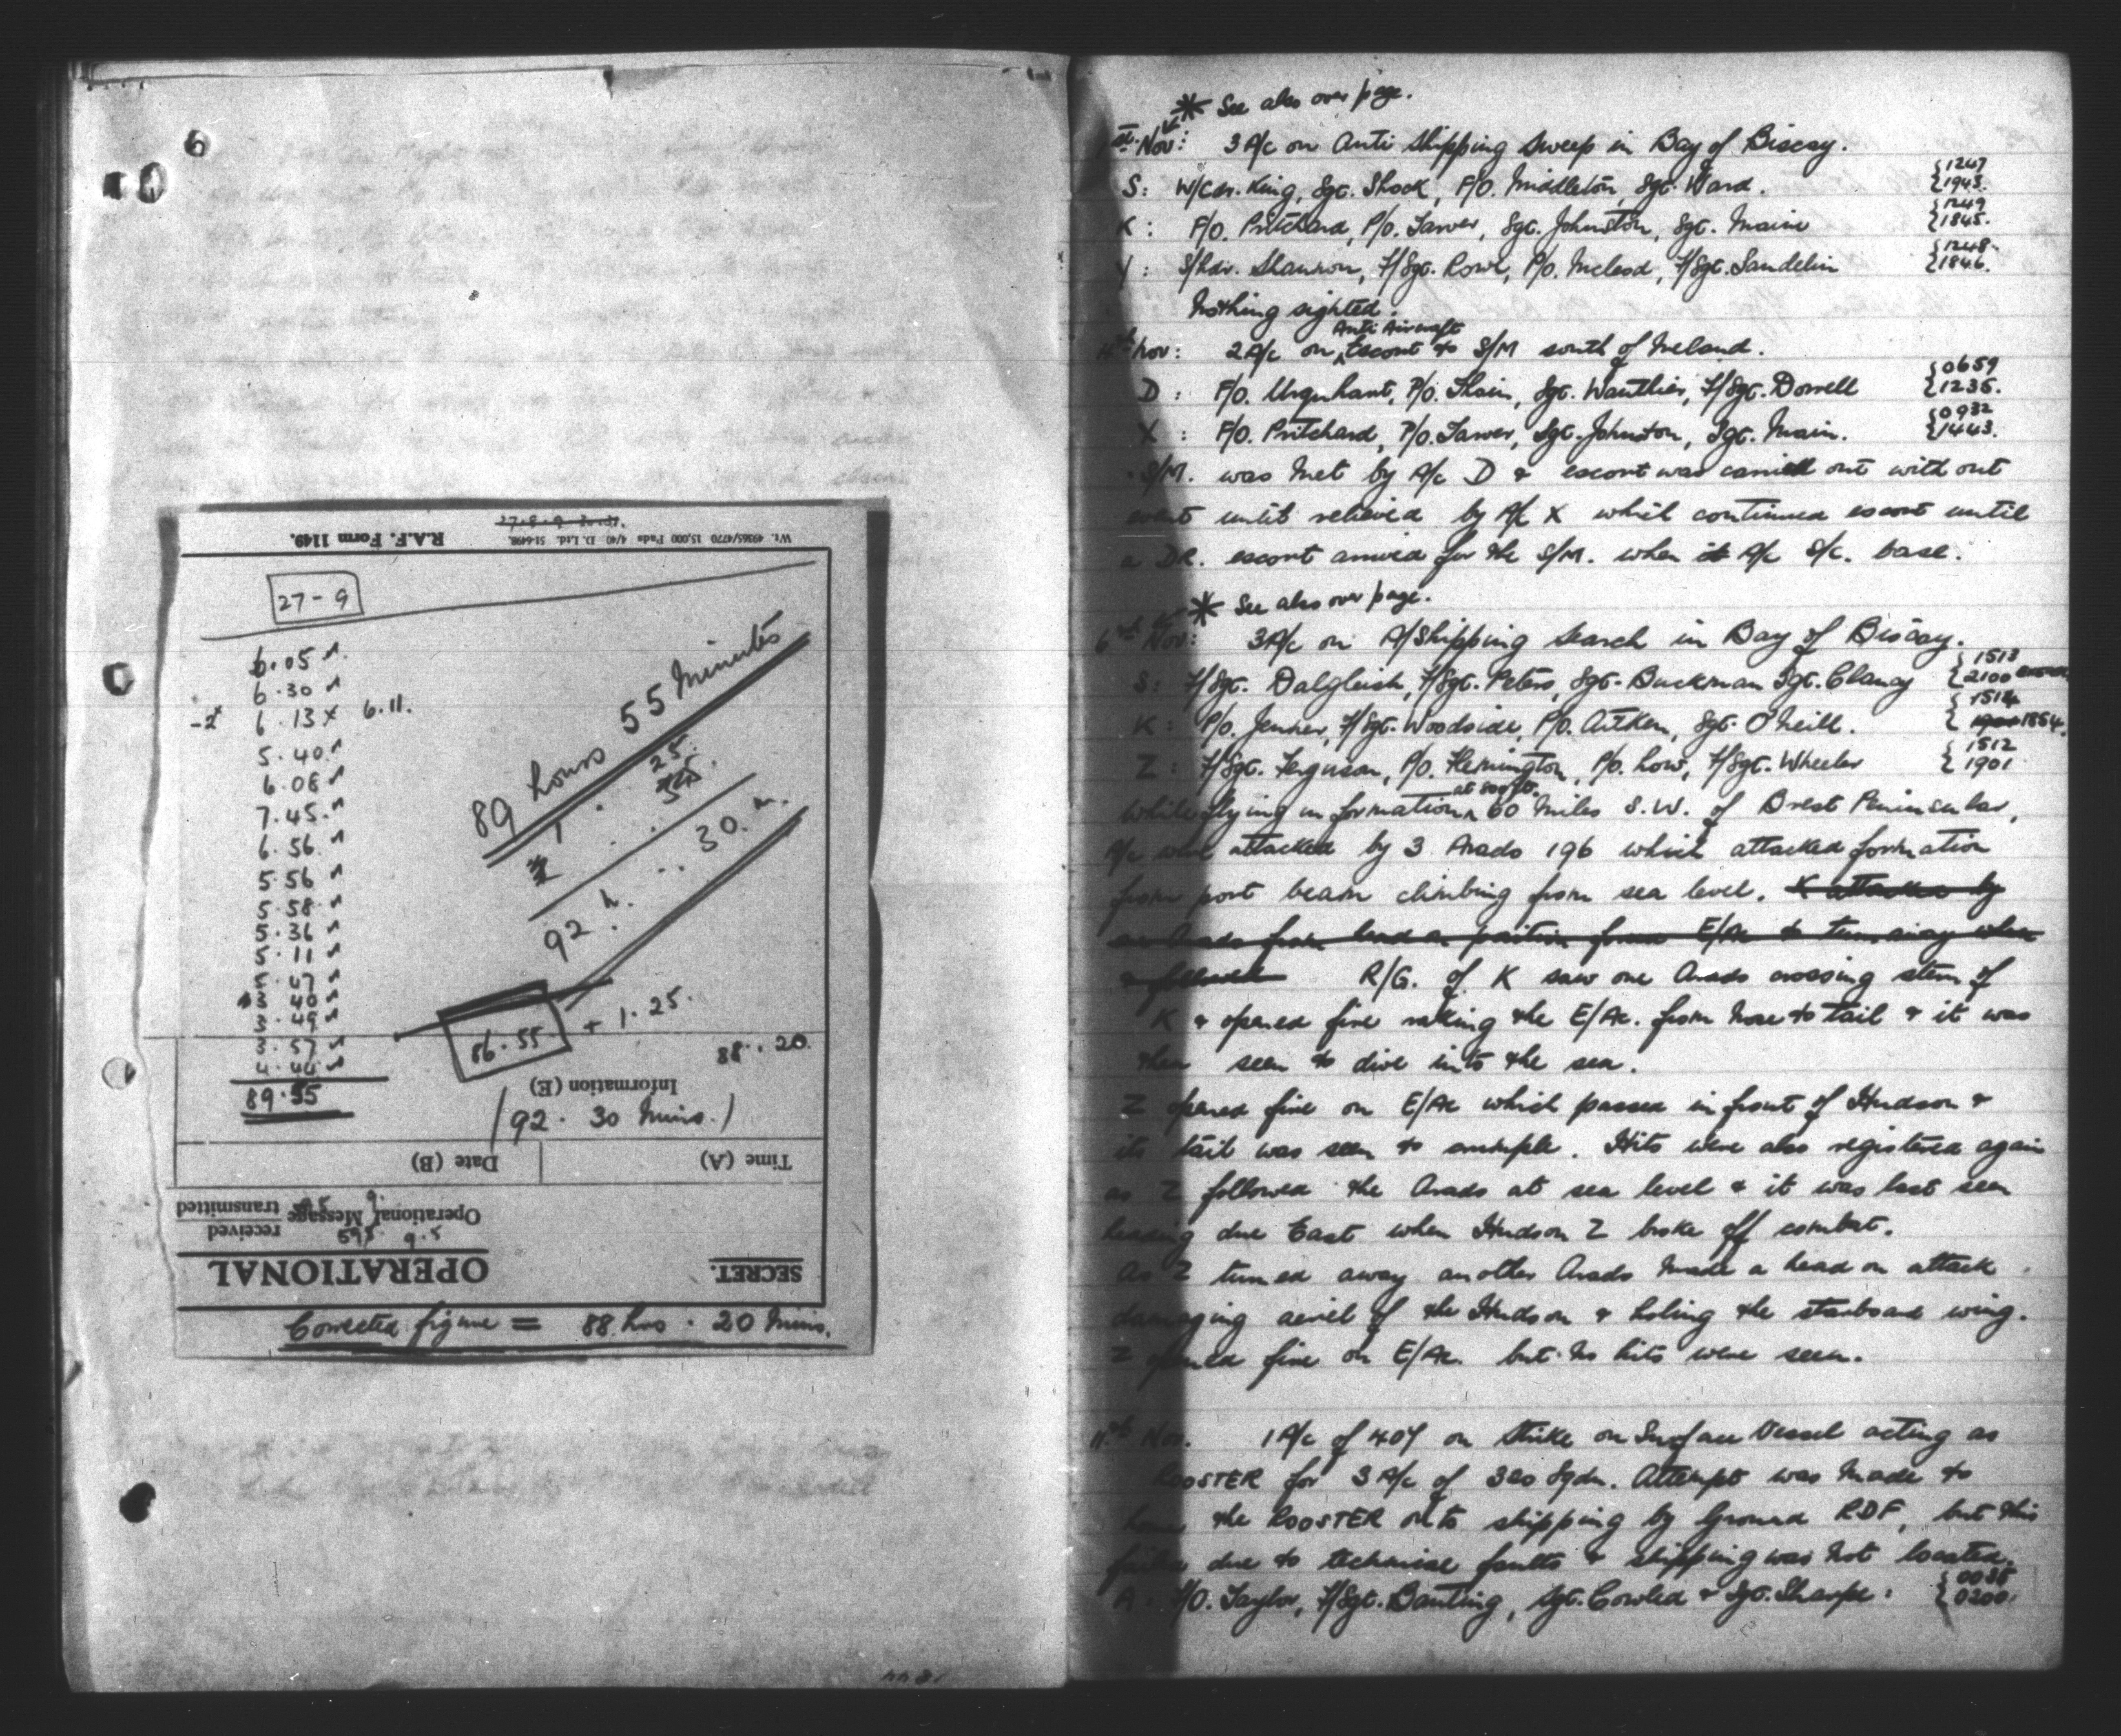 6
27-8-9
R.A.F. Form 1149.
Wt. 49365/4770 15,000 Pads 4/40 D. Ltd. 51-6498.
27-9
6.05
6.30
-2x 6.13x 6.11.
5.40
6.08
7.45
6.56
5.56
5.58
5.36
5.11
5.47
3 40
3.49
3.57
4.46
89.55
89 hours 55 minutes
1 . 25.
92 h. .. 30. m.
86.55 + 1.25.
88..20.
Information (E)
(92. 30 Mins.)
Date (B)
Time (A)
Operational Message
received
transmitted
595 9.5
OPERATIONAL
SECRET.
Corrected figure = 88 hrs. 20 Mins.
* See also over page.
1st Nov: 3 A/c on Anti Shipping Sweep in Bay of Biscay.
S: W/Cdr. King, Sgt. Shock, F/O. Middleton, Sgt. Ward. {1247 1943.
K: F/O. Pritchard, P/O. Tarver, Sgt. Johnston, Sgt. Main {1249 1845.
Y: S/Ldr. Shannon, F/Sgt. Rowe, P/O. McLeod, F/Sgt. Sandelin {1248. 1846.
Nothing sighted.
4th Nov: 2 A/c on Anti Aircraft Escort to S/M south of Ireland.
D: F/O. Urquhart, P/O. Thain, Sgt. Wauthier, F/Sgt. Dorrell {0659 1235.
X: F/O. Pritchard, P/O. Tarver, Sgt. Johnston, Sgt. Main. {0932 1443.
S/M. was met by A/c D & escort was carried out with out
event until relieved by A/c X which continued escort until
a DR. escort arrived for the S/M. when A/c S/C. base.
* See also over page.
6th Nov: 3 A/c on A/Shipping Search in Bay of Biscay.
S: F/Sgt. Dalgleish, F/Sgt. Peters, Sgt. Buckman Sgt. Clancy {1513 2100
K: P/O. Jenner, F/Sgt. Woodside, P/O. Aitken, Sgt. O'Neill. {1514 1854.
Z: F/Sgt. Ferguson, P/O. Flemington, P/O. Low, F/Sgt. Wheeler {1512 1901
While flying in formation at 800 ft. 60 miles S.W. of Brest Peninsular,
A/c were attacked by 3 Arado 196 which attacked formation
from port beam climbing from sea level. K attacked by
an Arado from lead on position from E/Ac & turn away when
& followed R/G. of K saw one Arado crossing stern of
K & opened fire raking the E/Ac. from nose to tail & it was
then seen to dive into the sea.
Z opened fire on E/Ac which passed in front of Hudson &
its tail was seen to crumple. Hits were also registered again
as Z followed the Arado at sea level & it was last seen
heading due East when Hudson Z broke off combat.
As Z turned away another Arado made a head on attack
damaging aeriel of the Hudson & holing the starboard wing.
Z opened fire on E/Ac. but no hits were seen.
11th Nov. 1 A/c of 407 on Strike on Surface Vessel acting as
ROOSTER for 3 A/c of 320 Sqdn. Attempt was made to
home the ROOSTER onto shipping by Ground RDF, but this
failed due to technical faults & shipping was not located.
A: F/O. Taylor, F/Sgt. Banting, Sgt. Cowled & Sgt. Sharpe: {0038 0200.